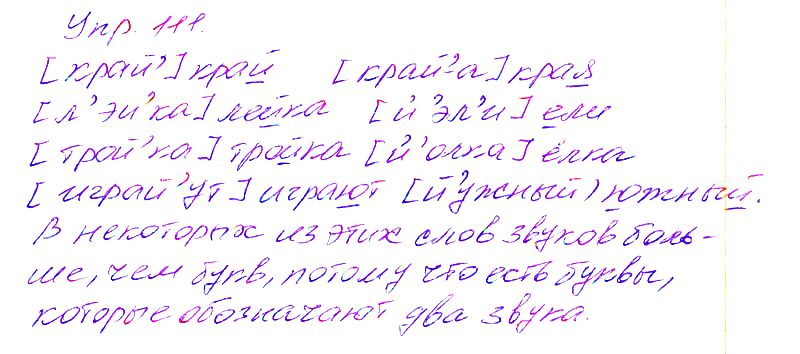 Упр. 111.
[край’] край [край’а] края
[л’эй’ка] лейка [й’эл’и] ели
[трой’ка] тройка [й’олка] ёлка
[играй’ут] играют [й’ужный) южный.
В некоторых из этих слов звуков боль-
ше, чем букв, потому что есть буквы,
которые обозначают два звука.